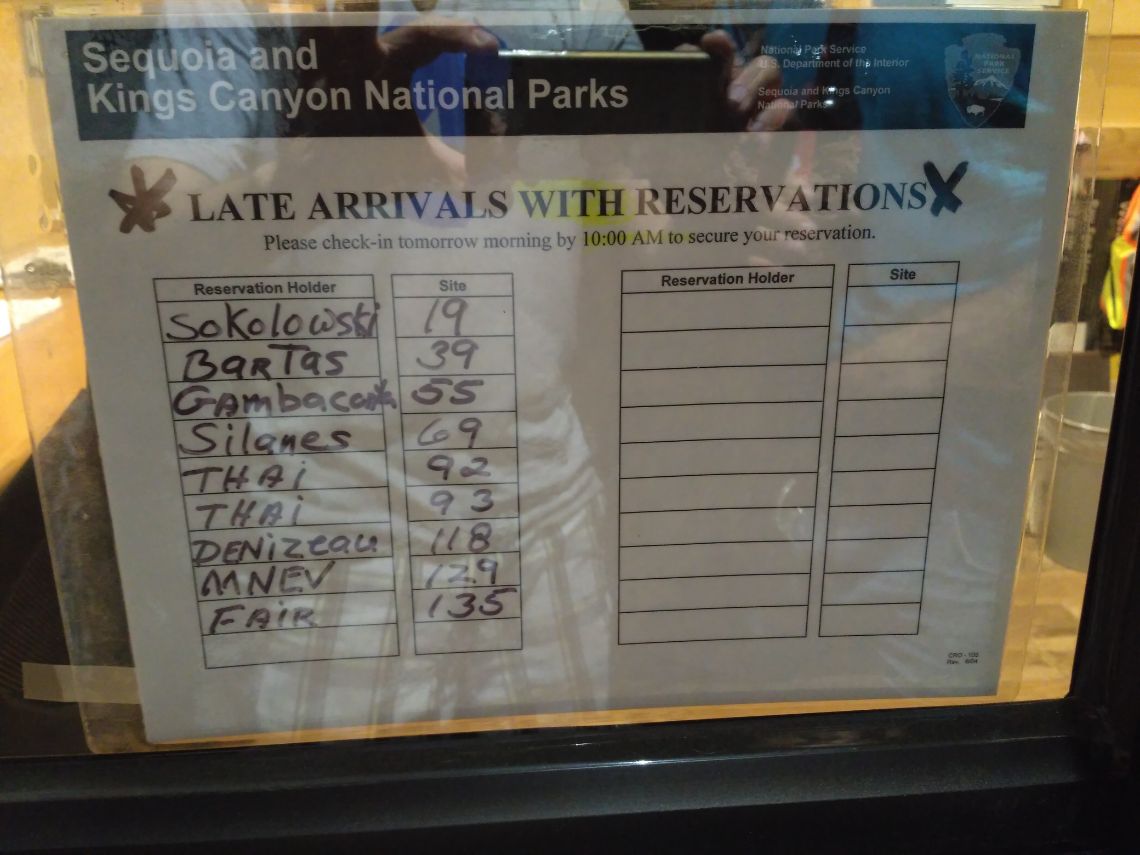 Sequoia and
Kings Canyon National Parks
National Park Service
U.S. Department of the Interior
Sequoia and Kings Canyon
National Parks
NATIONAL
PARK
SERVICE
LATE ARRIVALS WITH RESERVATIONS
Please check-in tomorrow morning by 10:00 AM to secure your reservation.
Reservation Holder Site
Sokolowski 19
BarTas 39
55
Silanes 69
THAi 92
THAi 93
DENizeau 118
MNEV 129
FAiR 135
Reservation Holder Site
CRO - 105
Rev. 6/04